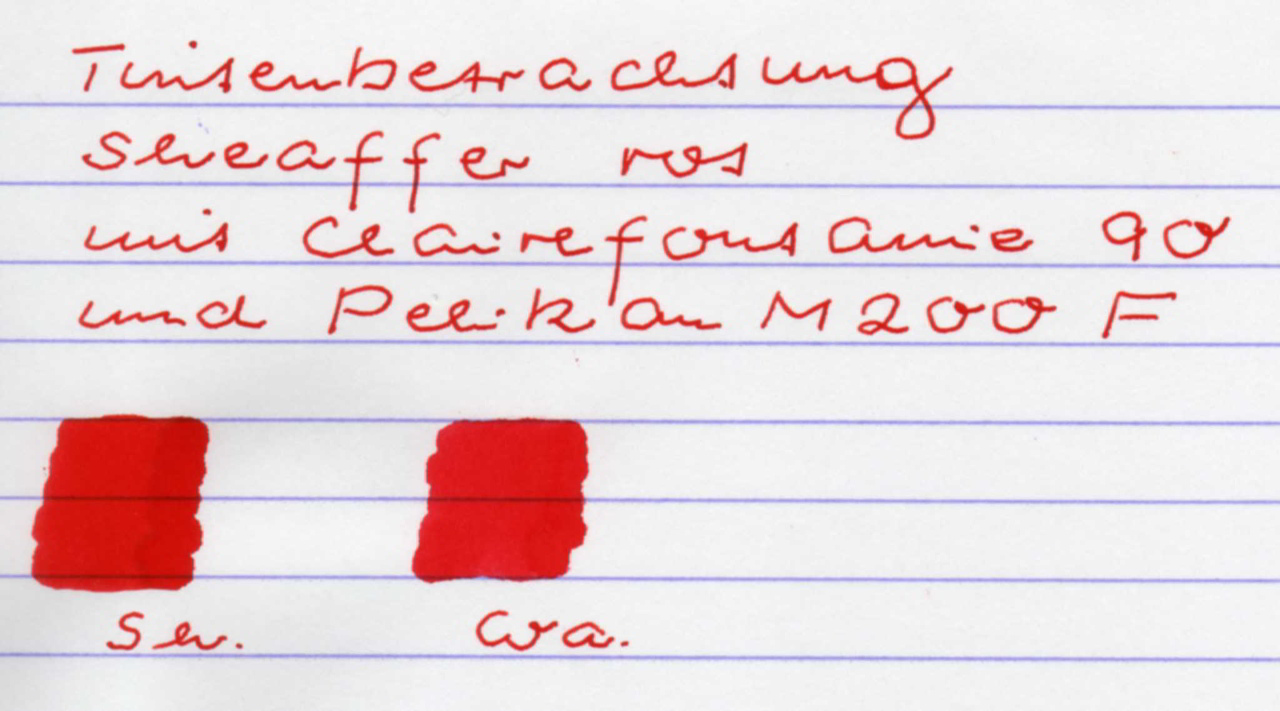 Tintenbetrachtung
Sheaffer rot
mit Clairefontaine 90
und Pelikan M200 F
Sh. Wa.